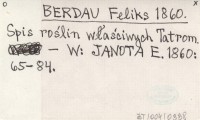 BERDAU Feliks 1860.
Spis roślin właściwych Tatrom.
– W: JANOTA E. 1860:
65-84.